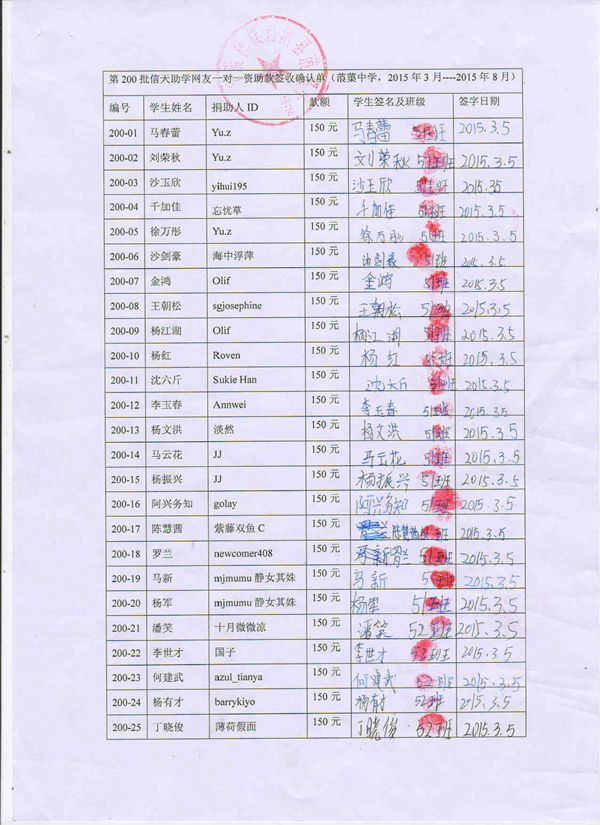 第 200 批信天助学网友一对一资助款签收确认单（菠葉中学，2015 年 3 月----2015 年 8 月）
编号 学生姓名 捐助人 ID 款额 学生签名及班级 签字日期
200-01 马春蕾 Yu.z 150 元 马春蕾 51班 2015.3.5
200-02 刘荣秋 Yu.z 150 元 刘荣秋 51班 2015.3.5
200-03 沙玉欣 yihui195 150 元 沙玉欣 51班 2015.3.5
200-04 千加佳 忘忧草 150 元 千加佳 51班 2015.3.5
200-05 徐万彤 Yu.z 150 元 徐万彤 51班 2015.3.5
200-06 沙剑豪 海中浮萍 150 元 沙剑豪 51班 2015.3.5
200-07 金鸿 Olif 150 元 金鸿 51班 2015.3.5
200-08 王朝松 sgjosephine 150 元 王朝松 51班 2015.3.5
200-09 杨江湖 Olif 150 元 杨江湖 51班 2015.3.5
200-10 杨红 Roven 150 元 杨红 51班 2015.3.5
200-11 沈六斤 Sukie Han 150 元 沈六斤 51班 2015.3.5
200-12 李玉春 Annwei 150 元 李玉春 51班 2015.3.5
200-13 杨文洪 淡然 150 元 杨文洪 51班 2015.3.5
200-14 马云花 JJ 150 元 马云花 51班 2015.3.5
200-15 杨振兴 JJ 150 元 杨振兴 51班 2015.3.5
200-16 阿兴务知 golay 150 元 阿兴务知 51班 2015.3.5
200-17 陈慧茜 紫藤双鱼 C 150 元 陈慧茜 班 2015.3.5
200-18 罗兰 newcomer408 150 元 51班 2015.3.5
200-19 马新 mjmumu 静女其姝 150 元 马新 51班 2015.3.5
200-20 杨军 mjmumu 静女其姝 150 元 杨军 51班 2015.3.5
200-21 潘笑 十月微微凉 150 元 潘笑 52班 2015.3.5
200-22 李世才 国子 150 元 李世才 52班 2015.3.5
200-23 何建武 azul_tianya 150 元 何建武 52班 2015.3.5
200-24 杨有才 barrykiyo 150 元 杨有才 52班 2015.3.5
200-25 丁晓俊 薄荷假面 150 元 丁晓俊 52班 2015.3.5